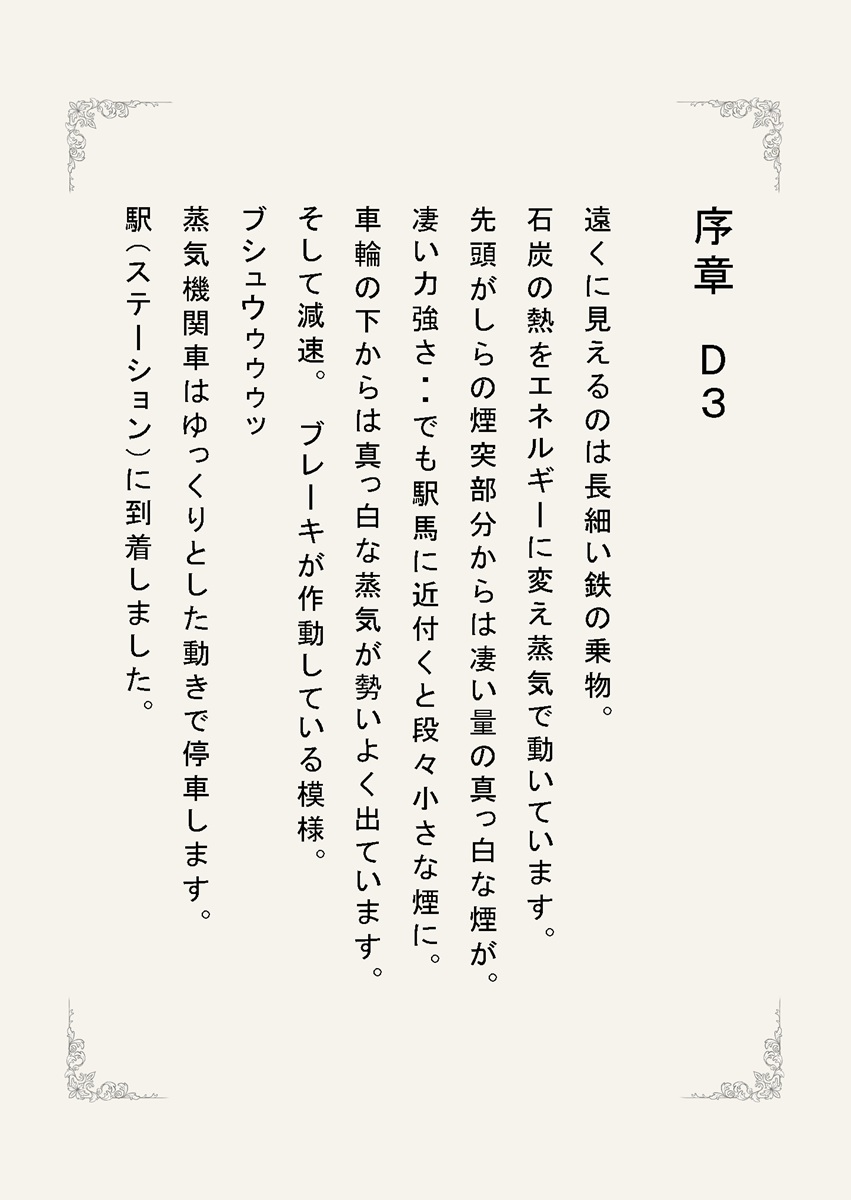 序章　D3
遠くに見えるのは長細い鉄の乗物。
石炭の熱をエネルギーに変え蒸気で動いています。
先頭がしらの煙突部分からは凄い量の真っ白な煙が。
凄い力強さ・・でも駅馬に近付くと段々小さな煙に。
車輪の下からは真っ白な蒸気が勢いよく出ています。
そして減速。　ブレーキが作動している模様。
ブシュウゥゥゥッ
蒸気機関車はゆっくりとした動きで停車します。
駅（ステーション）に到着しました。